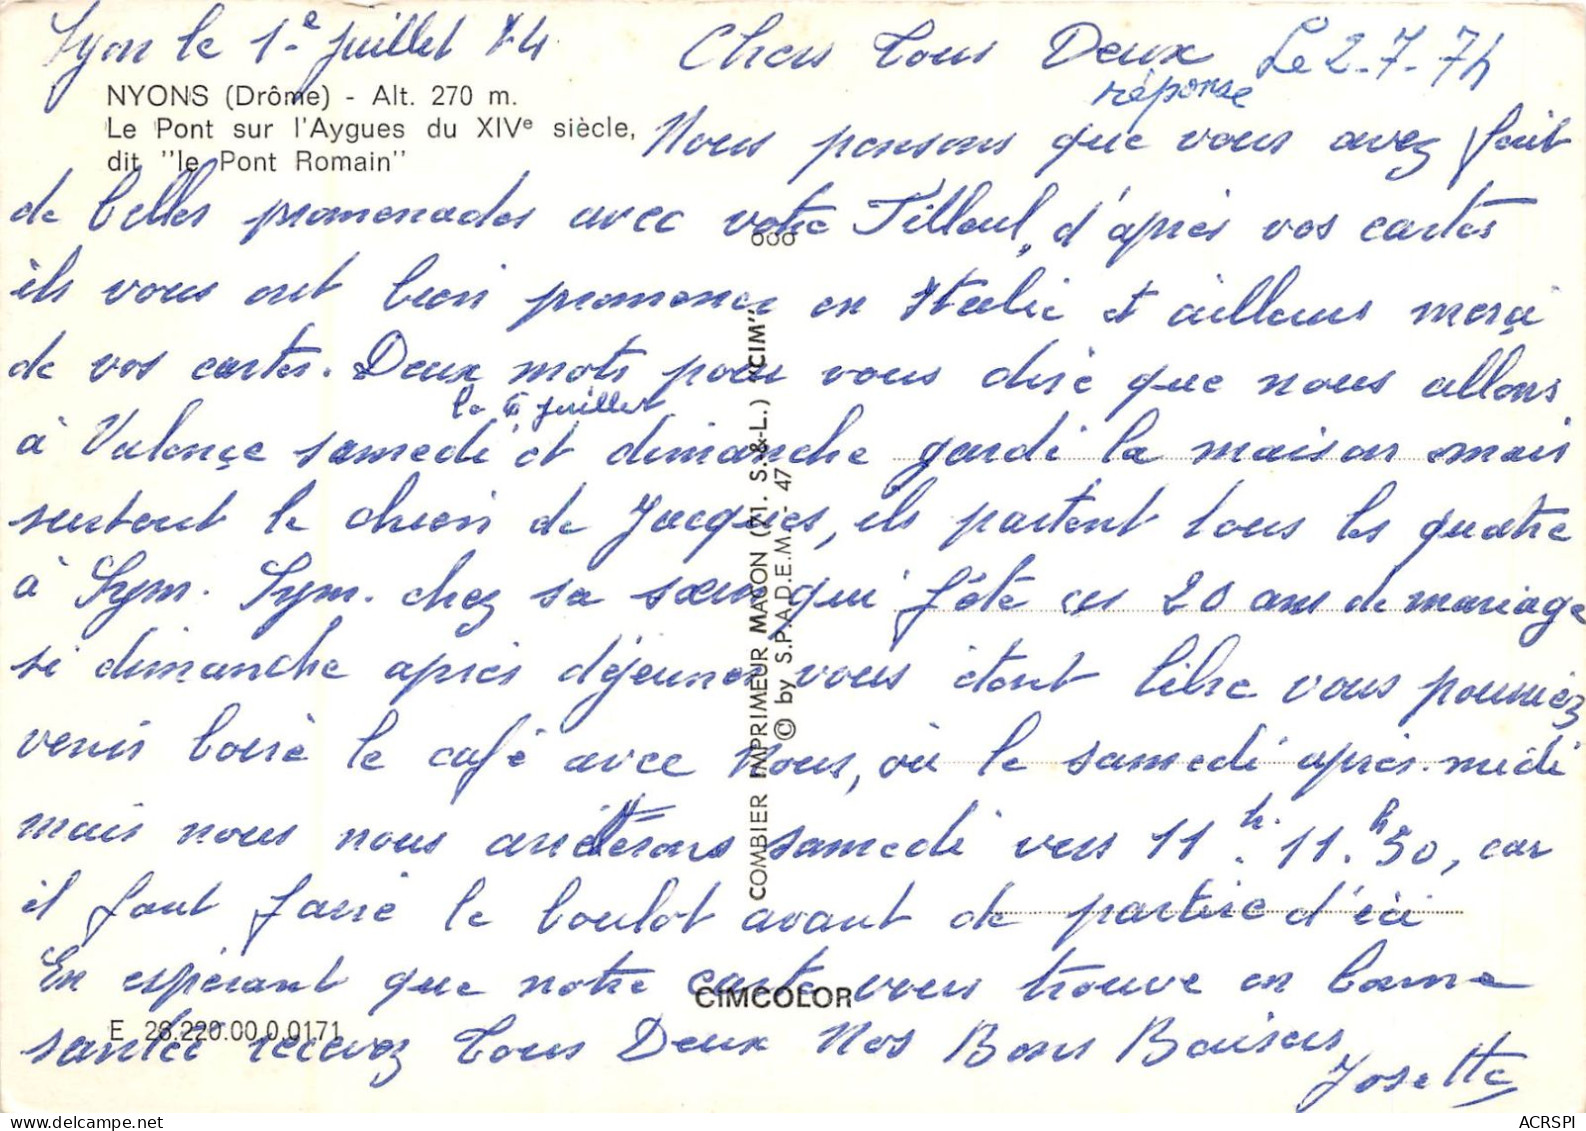 Lyon le 1e juillet 74
Chers Tous Deux
Le 2-7-74
réponse
NYONS (Drôme) - Alt. 270 m.
Le Pont sur l'Aygues du XIVe siècle,
dit "le Pont Romain"
Nous pensons que vous avez fait
de belles promenades avec votre Tilleul, d'après vos cartes
ils vous ont bien promener en Italie et ailleurs merci
de vos cartes. Deux mots pour vous dire que nous allons
le 6 juillet
à Valence samedi et dimanche gardé la maison mais
surtout le chien de Jacques, ils partent tous les quatre
à Lyon. Lyon. chez sa sœur qui fête ces 20 ans de mariage
si dimanche après déjeuner vous étant libre vous pourriez
venir boire le café avec Nous, où le samedi après-midi
mais nous nous arrêterons samedi vers 11h. 11.h30, car
il faut faire le boulot avant de partire d'ici
En espérant que notre carte vous trouve en bonne
santée recevez Tous Deux Nos Bons Baisers
Josette
COMBIER IMPRIMEUR MACON (71. S.-&-L.) "CIM"
© by S.P.A.D.E.M. - 47
ooo
CIMCOLOR
E 26.220.00.0.0171
ACRSPI